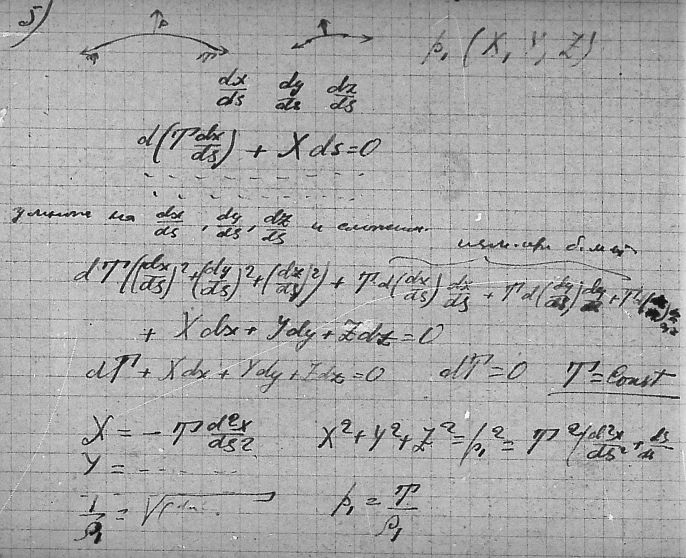 5)
p
T T
p₁ (X, Y, Z)
dx/ds dy/ds dz/ds
d(T dx/ds) + X ds = 0
- - - - - - - -
- - - - - - - -
умножая на dx/ds, dy/ds, dz/ds и сложим
dT((dx/ds)² + (dy/ds)² + (dz/ds)²) + T d(dx/ds) dx/ds + T d(dy/ds) dy/ds + T
+ Xdx + Ydy + Zdz = 0
dT + Xdx + Ydy + Zdz = 0 dT = 0 T = Const
X = - T d²x/ds² X² + Y² + Z² = p₁² = T² (d²x/ds² +
Y = - - - - -
1/ρ₁ = √( p₁ = T/ρ₁